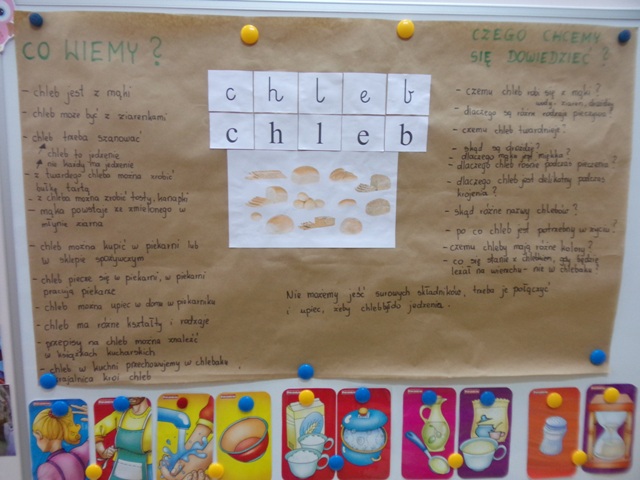 CO WIEMY?
- chleb jest z mąki
- chleb może być z ziarenkami
- chleb trzeba szanować
* chleb to jedzenie
* nie każdy ma jedzenie
- z twardego chleba można zrobić
bułkę tartą
- z chleba można zrobić tosty, kanapki
- mąka powstaje ze zmielonego w
młynie ziarna
- chleb można kupić w piekarni lub
w sklepie spożywczym
- chleb piecze się w piekarni, w piekarni
pracują piekarze
- chleb można upiec w domu w piekarniku
- chleb ma różne kształty i rodzaje
- przepisy na chleb można znaleźć
w książkach kucharskich
- chleb w kuchni przechowujemy w chlebaku,
krajalnica kroi chleb
c h l e b
c h l e b
CZEGO CHCEMY
SIĘ DOWIEDZIEĆ?
- czemu chleb robi się z mąki?
- dlaczego są różne rodzaje pieczywa?
- czemu chleb twardnieje?
- skąd są drożdże?
- dlaczego mąka jest miękka?
- dlaczego chleb rośnie podczas pieczenia?
- dlaczego chleb jest delikatny podczas
krojenia?
- skąd różne nazwy chlebów?
- po co chleb jest potrzebny w życiu?
- czemu chleby mają różne kolory?
- co się stanie z chlebem, gdy będzie
leżał na wierzchu - nie w chlebaku?
Nie możemy jeść surowych składników, trzeba je połączyć
i upiec, żeby chleb był do jedzenia.